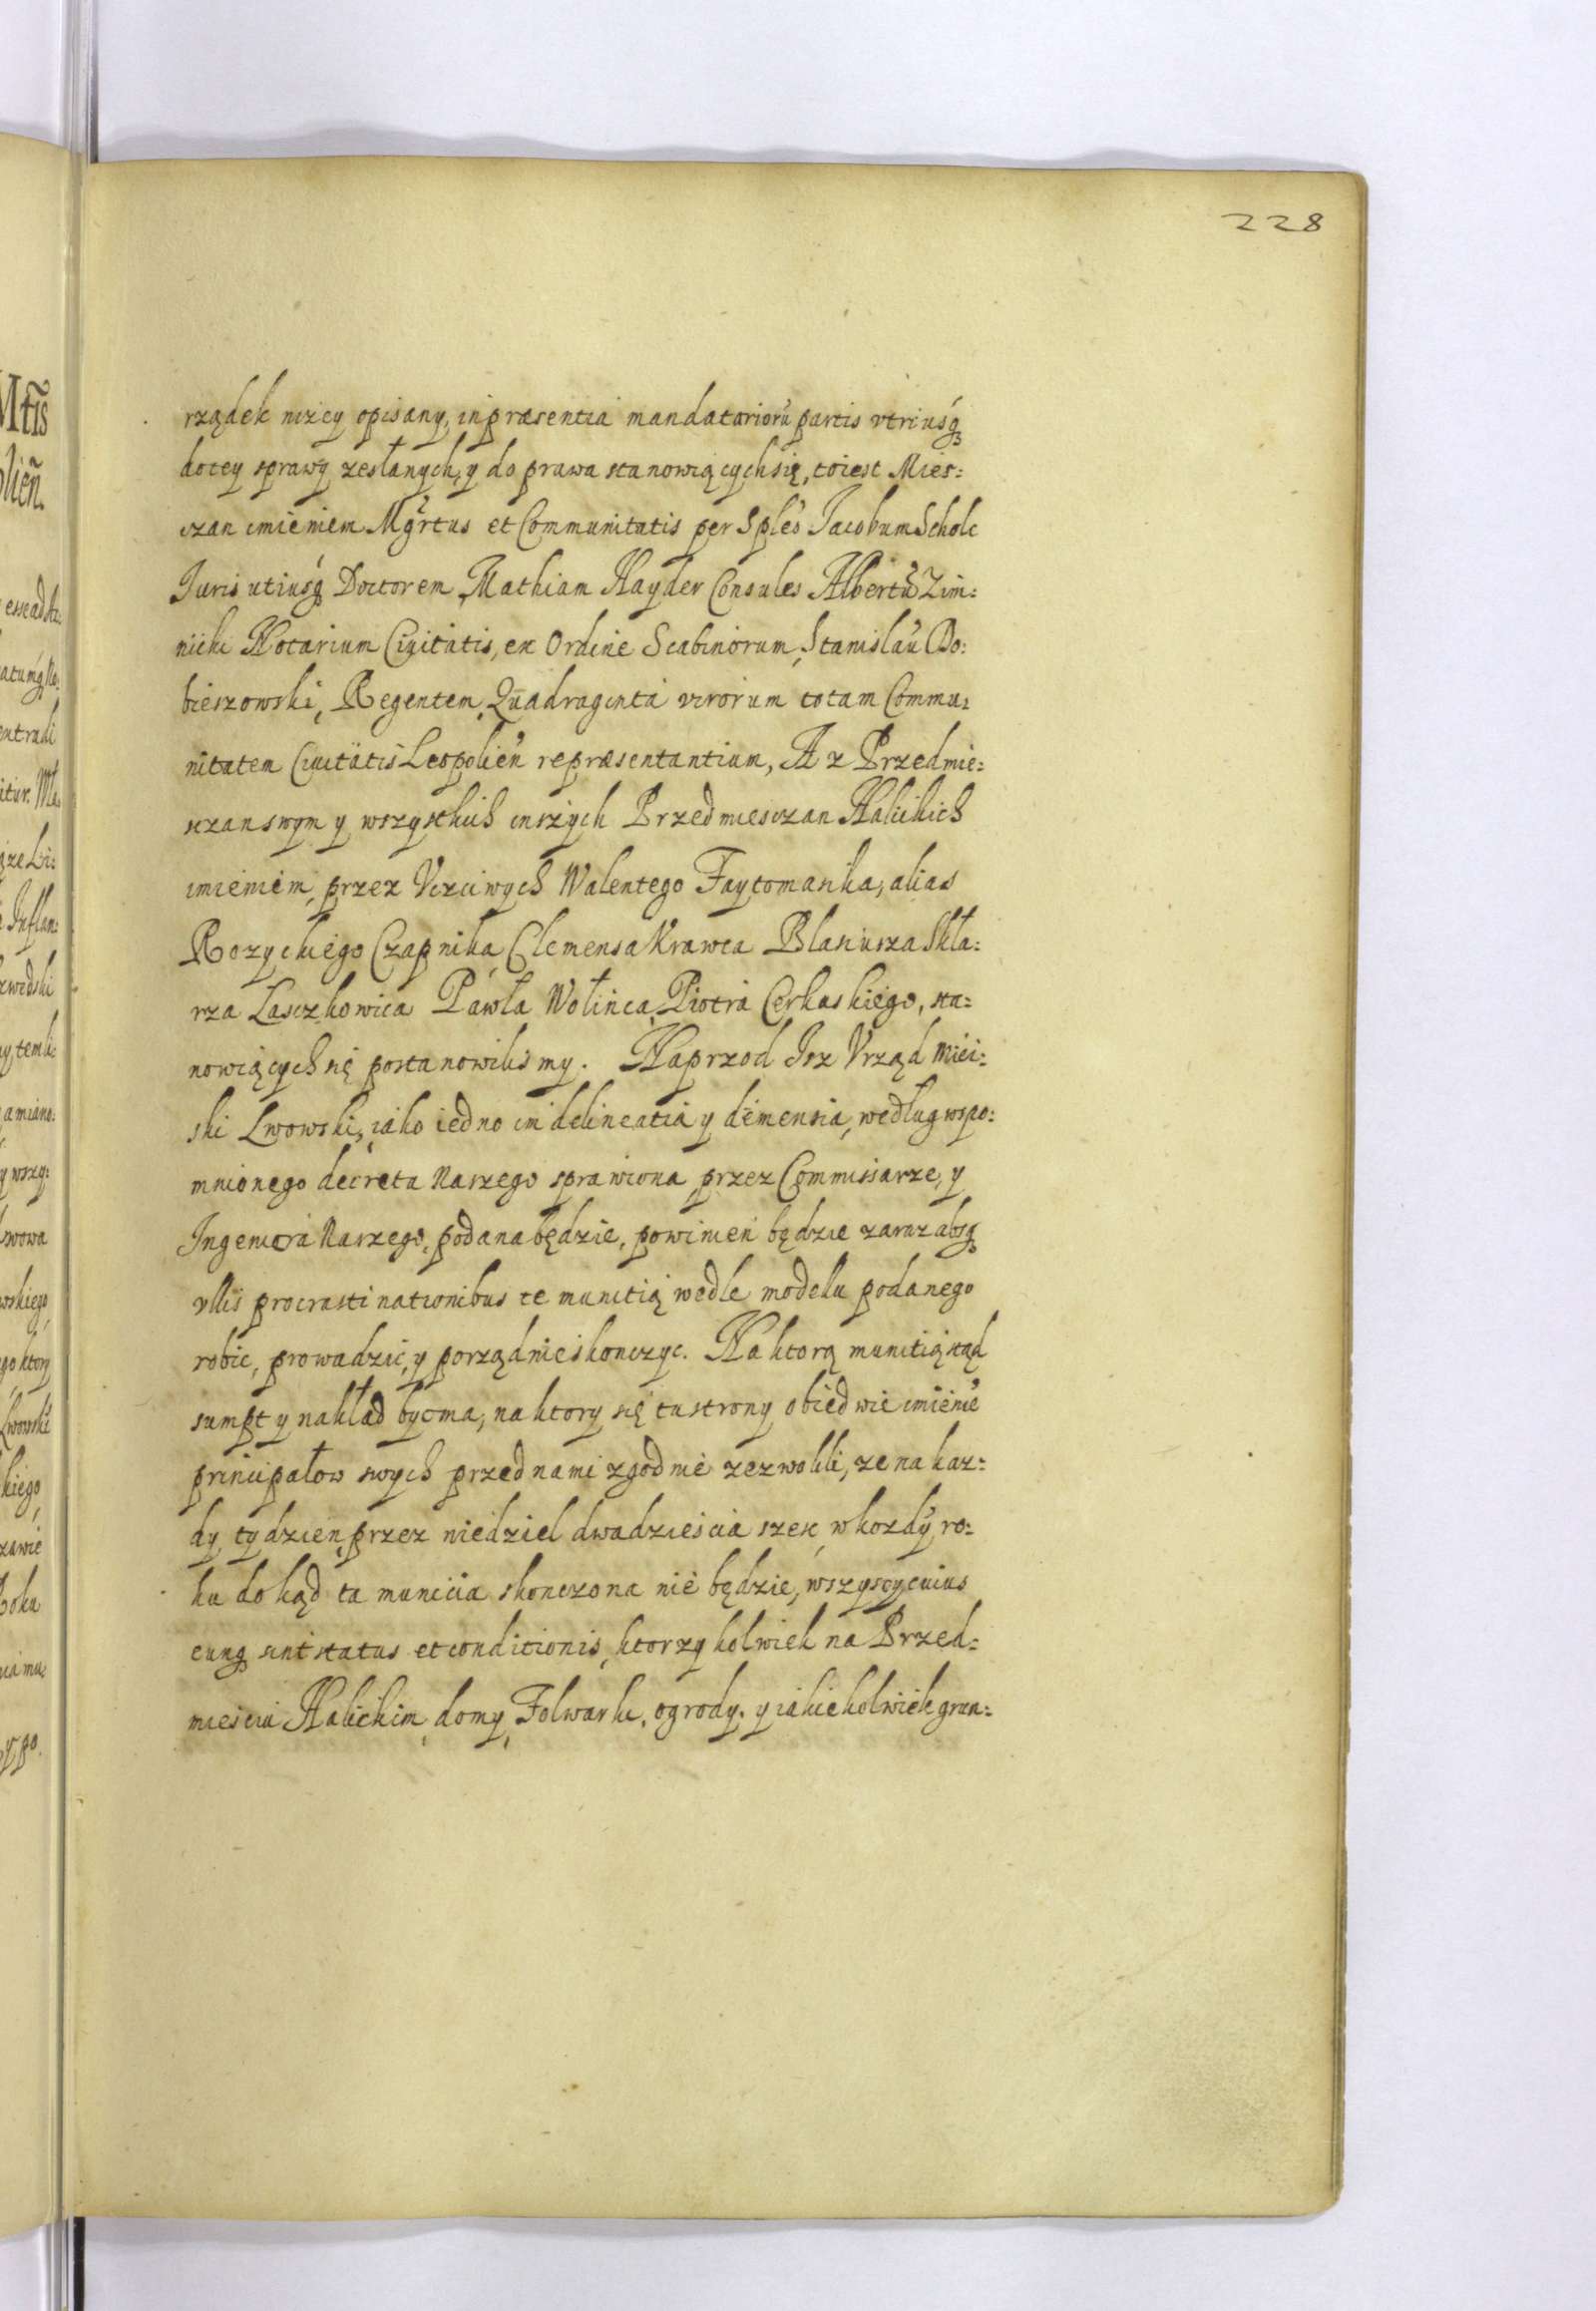 228
rządek nizey opisany, in præsentia mandatariorũ partis vtriusq̨
do tey sprawy zesłanych, y do prawa stanowiących się, to iest Mies:
czan imieniem Mg̃rtus et Communitatis per Spleś Jacobum Scholc
Juris utiusq̨ Doctorem, Mathiam Hayder Consules Albertũ Zim:
nicki Notarium Ciuitatis, ex Ordine Scabinorum, Stanislaũ Do:
bieszowski, Regentem, Quadraginta virorum totam Commu:
nitatem Ciuitatis Leopolień repræsentantium, A z Przedmie:
sczan swym y wszystkich inszych Przedmiesczan Halickich
imieniem, przez Vczciwych Walentego Faytomasika, alias
Rozyckiego Czapnika, Clemensa Krawca Blasiusza Skla:
rza Lasczkowica Pawła Wolinca, Piotra Cerkaskiego, sta:
nowiących się postanowilismy. Naprzod Isz Vrząd Miei:
ski Lwowski, iako iedno in delineatia y dimensia, według wspo:
mnionego decretu Naszego sprawiona, przez Commissarze, y
Ingeniera Naszego, podana będzie, powinien będzie zaraz absq̨
vllis procrastinationibus te munitią wedle modelu podanego
robic, prowadzic, y porządnie skonczyc. Na ktorą munitią stąd
sumpt y nakład byc ma, na ktory się tu strony obiedwie imienie͂
principałow swych przed nami zgodnie zezwolili, ze na kaz:
dy, tydzien, przez niedziel dwadziescia szesc, w kozdỹ, ro:
ku dokąd ta municia skonczona nie będzie, wszyscy cuius
cunq̨ sint status et conditionis, ktorzykolwiek na Przed:
miesciu Halickim, domy, Folwarki, ogrody, y iakiekolwiek grun: